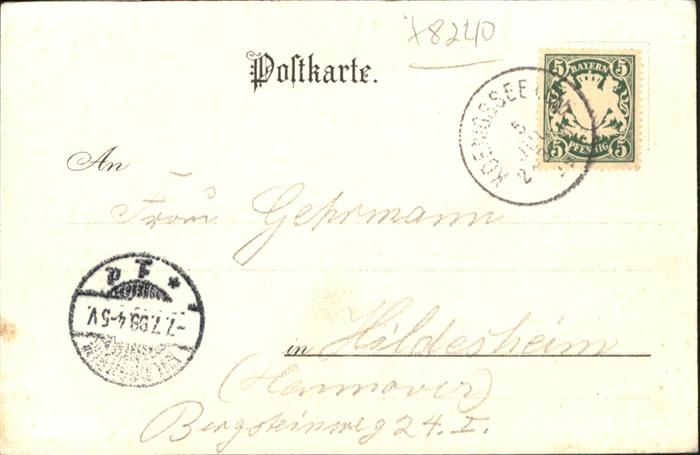 x8240
Postkarte.
5 BAYERN 5
5 PFENNIG 5
KOENIGSSEE
5 JUL
An
Frau Gehrmann
-7.7.99.4-5V.
in Hildesheim
(Hannover)
Bergsteinweg 24. I.